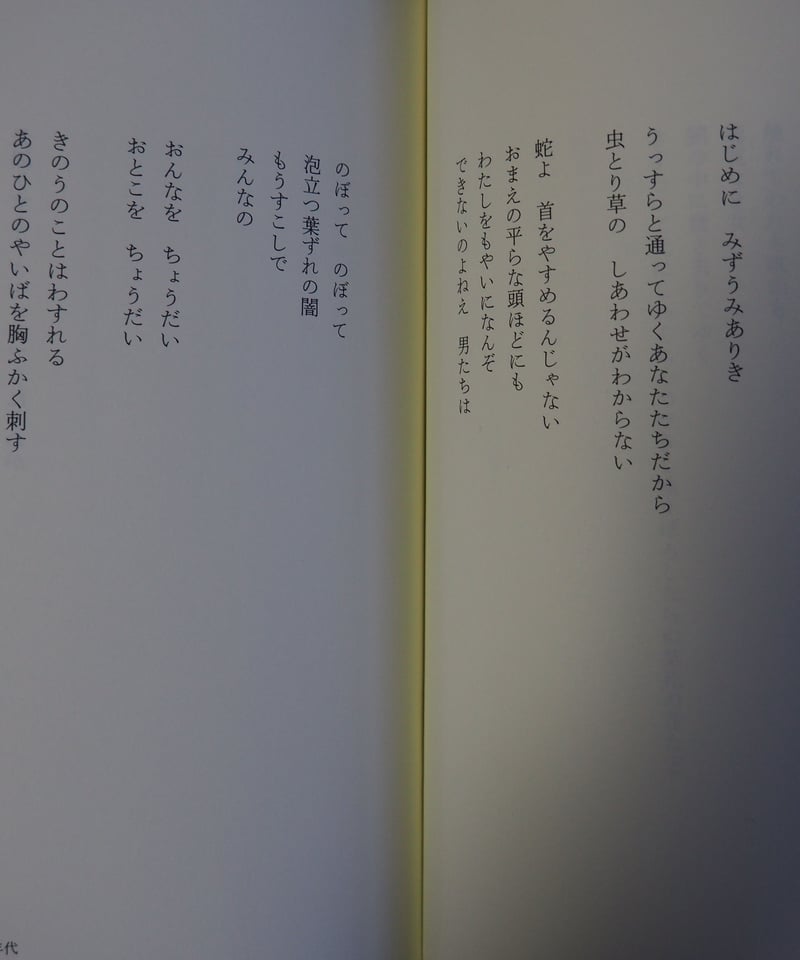 はじめに　みずうみありき
うっすらと通ってゆくあなたたちだから
虫とり草の　しあわせがわからない
蛇よ　首をやすめるんじゃない
おまえの平らな頭ほどにも
わたしをもやいになんぞ
できないのよねえ　男たちは
のぼって　のぼって
泡立つ葉ずれの闇
もうすこしで
みんなの
おんなを　ちょうだい
おとこを　ちょうだい
きのうのことはわすれる
あのひとのやいばを胸ふかく刺す
年代